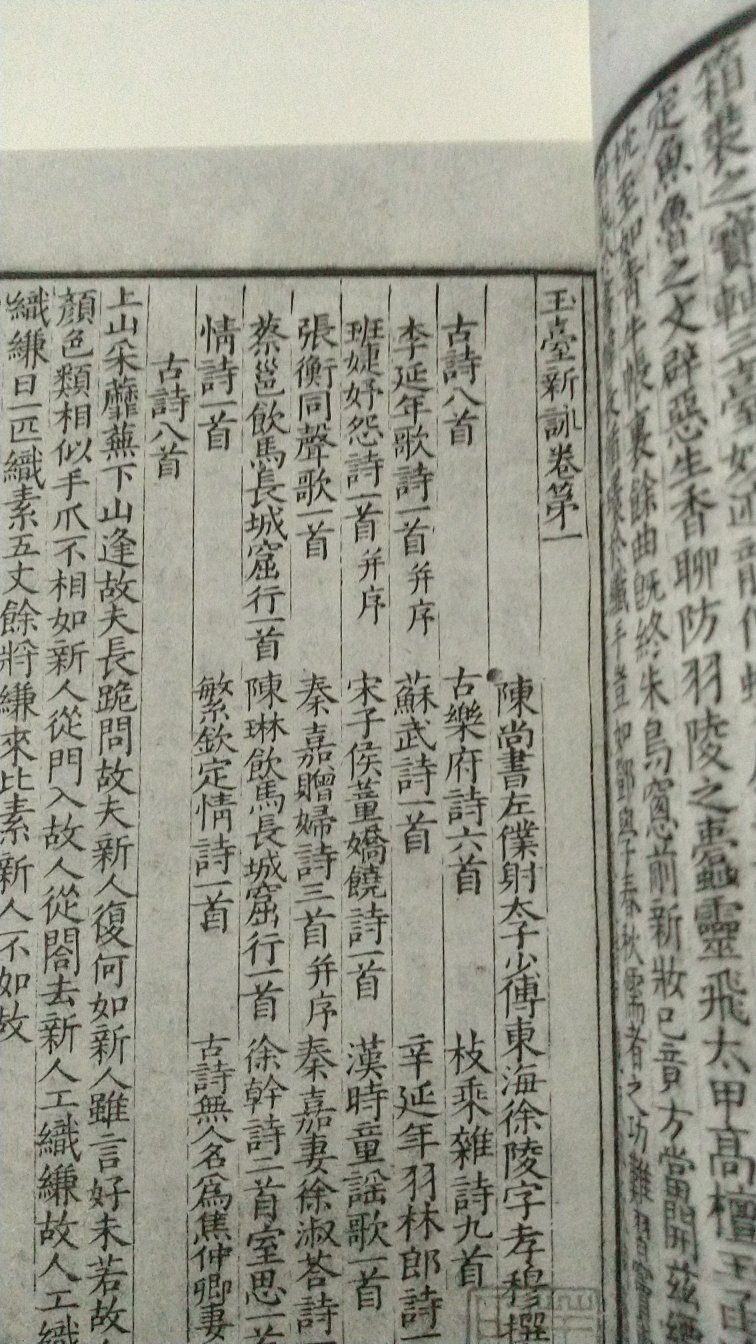 箱裝之寶軒三臺妙迹
定魚魯之文辟惡生香聊防羽陵之蠹靈飛太甲高檀玉函
至如青牛帳裏餘曲既終朱鳥窗前新妝已竟方當開茲縹
於纖手豈如鄧與子春秋儒者之功難
玉臺新詠卷第一
陳尚書左僕射太子少傅東海徐陵字孝穆撰
古詩八首 古樂府詩六首 枚乘雜詩九首
李延年歌詩一首并序 蘇武詩一首 辛延年羽林郎詩一
班婕妤怨詩一首并序 宋子侯董嬌饒詩一首 漢時童謠歌一首
張衡同聲歌一首 秦嘉贈婦詩三首并序 秦嘉妻徐淑荅詩
蔡邕飲馬長城窟行一首 陳琳飲馬長城窟行一首 徐幹詩二首室思一首
情詩一首 繁欽定情詩一首 古詩無人名爲焦仲卿妻
古詩八首
上山采蘼蕪下山逢故夫長跪問故夫新人復何如新人雖言好未若故人
顏色類相似手爪不相如新人從門入故人從閤去新人工織縑故人工織
織縑日一匹織素五丈餘將縑來比素新人不如故